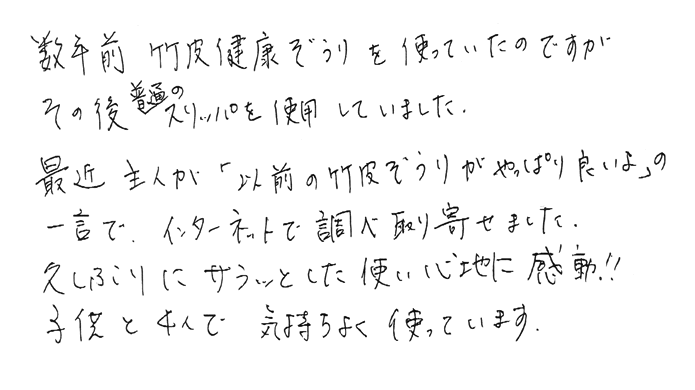 数年前 竹皮健康ぞうりを使っていたのですが
その後普通のスリッパを使用していました.
最近 主人が「以前の竹皮ぞうりがやっぱり良いよ」の
一言で. インターネットで調べ取り寄せました.
久しぶりにサラッとした使い心地に感動!!
子供と4人で 気持ちよく使っています.